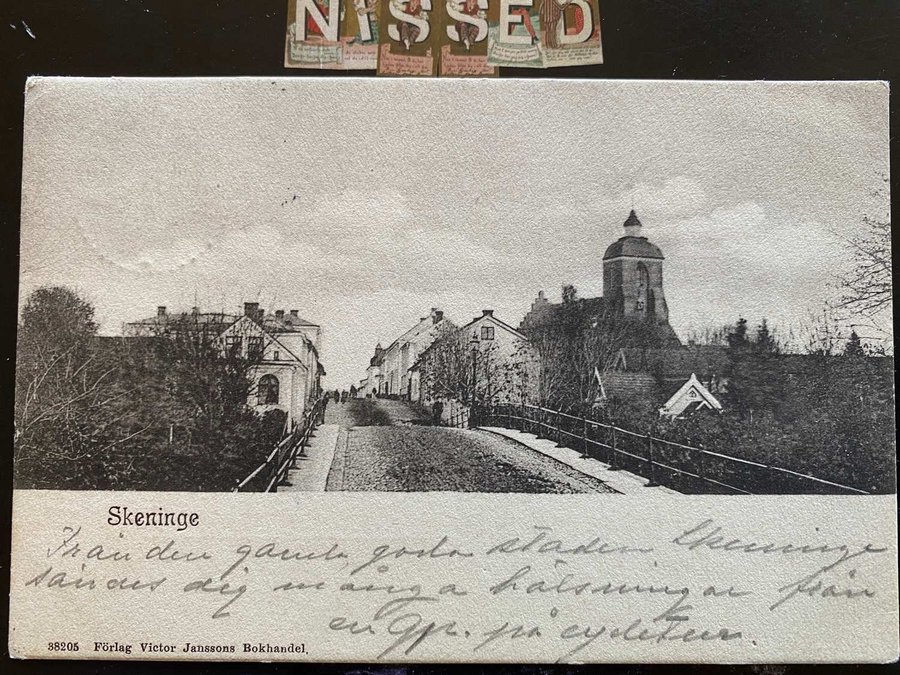 NISSED
Skeninge
Från den gamla goda staden Skeninge
sändes dig många hälsningar från
en på cykeltur.
38205 Förlag Victor Janssons Bokhandel.